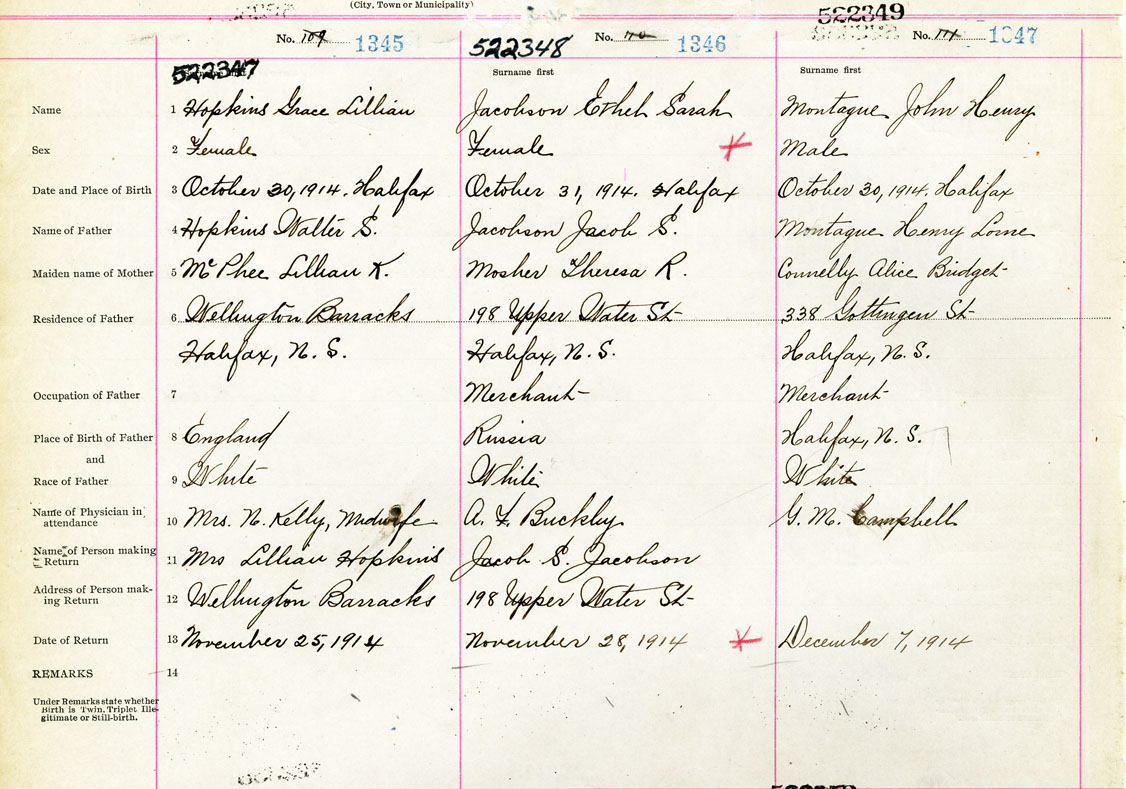 (City, Town or Municipality)
522349
No. 109 1345
522348 No. 110 1346
No. 111 1347
522347
Surname first
Surname first
Name 1 Hopkins Grace Lillian Jacobson Ethel Sarah Montague John Henry
Sex 2 Female Female Male
Date and Place of Birth 3 October 30, 1914. Halifax October 31, 1914. Halifax October 30, 1914. Halifax
Name of Father 4 Hopkins Walter S. Jacobson Jacob S. Montague Henry Lorne
Maiden name of Mother 5 McPhee Lillian K. Mosher Theresa R. Connelly Alice Bridget
Residence of Father 6 Wellington Barracks 198 Upper Water St 338 Gottingen St
Halifax, N. S. Halifax, N. S. Halifax, N. S.
Occupation of Father 7 Merchant Merchant
Place of Birth of Father 8 England Russia Halifax, N. S.
and
Race of Father 9 White White White
Name of Physician in
attendance 10 Mrs. N. Kelly, Midwife A. F. Buckley G. M. Campbell
Name of Person making
Return 11 Mrs Lillian Hopkins Jacob S. Jacobson
Address of Person mak-
ing Return 12 Wellington Barracks 198 Upper Water St
Date of Return 13 November 25, 1914 November 28, 1914 December 7, 1914
REMARKS 14
Under Remarks state whether
Birth is Twin, Triplet Ille-
gitimate or Still-birth.